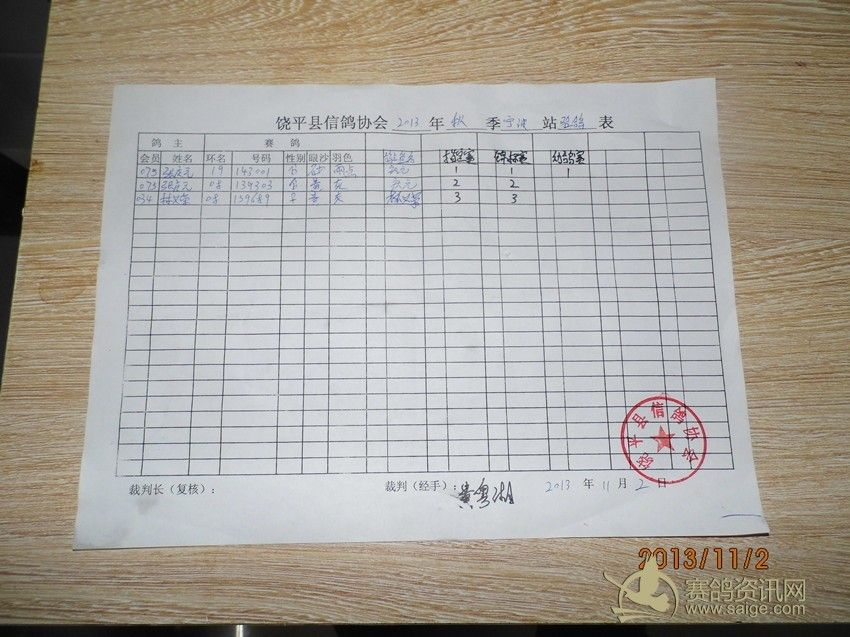 饶平县信鸽协会 2013 年 秋 季 宁波 站 验鸽 表
鸽 主 赛 鸽
会员 姓名 环名 号码 性别 眼沙 羽色 指定赛
075 张庆元 19 143001 砂 雨点 庆元 1 1 1
075 张庆元 08 139303 黄 灰 庆元 2 2
034 08 139689 黄 灰 3 3
裁判长（复核）： 裁判（经手）： 黄粤湖 2013 年 11 月 2 日
饶平县信鸽协会
2013/11/2
赛鸽资讯网
www.saige.com